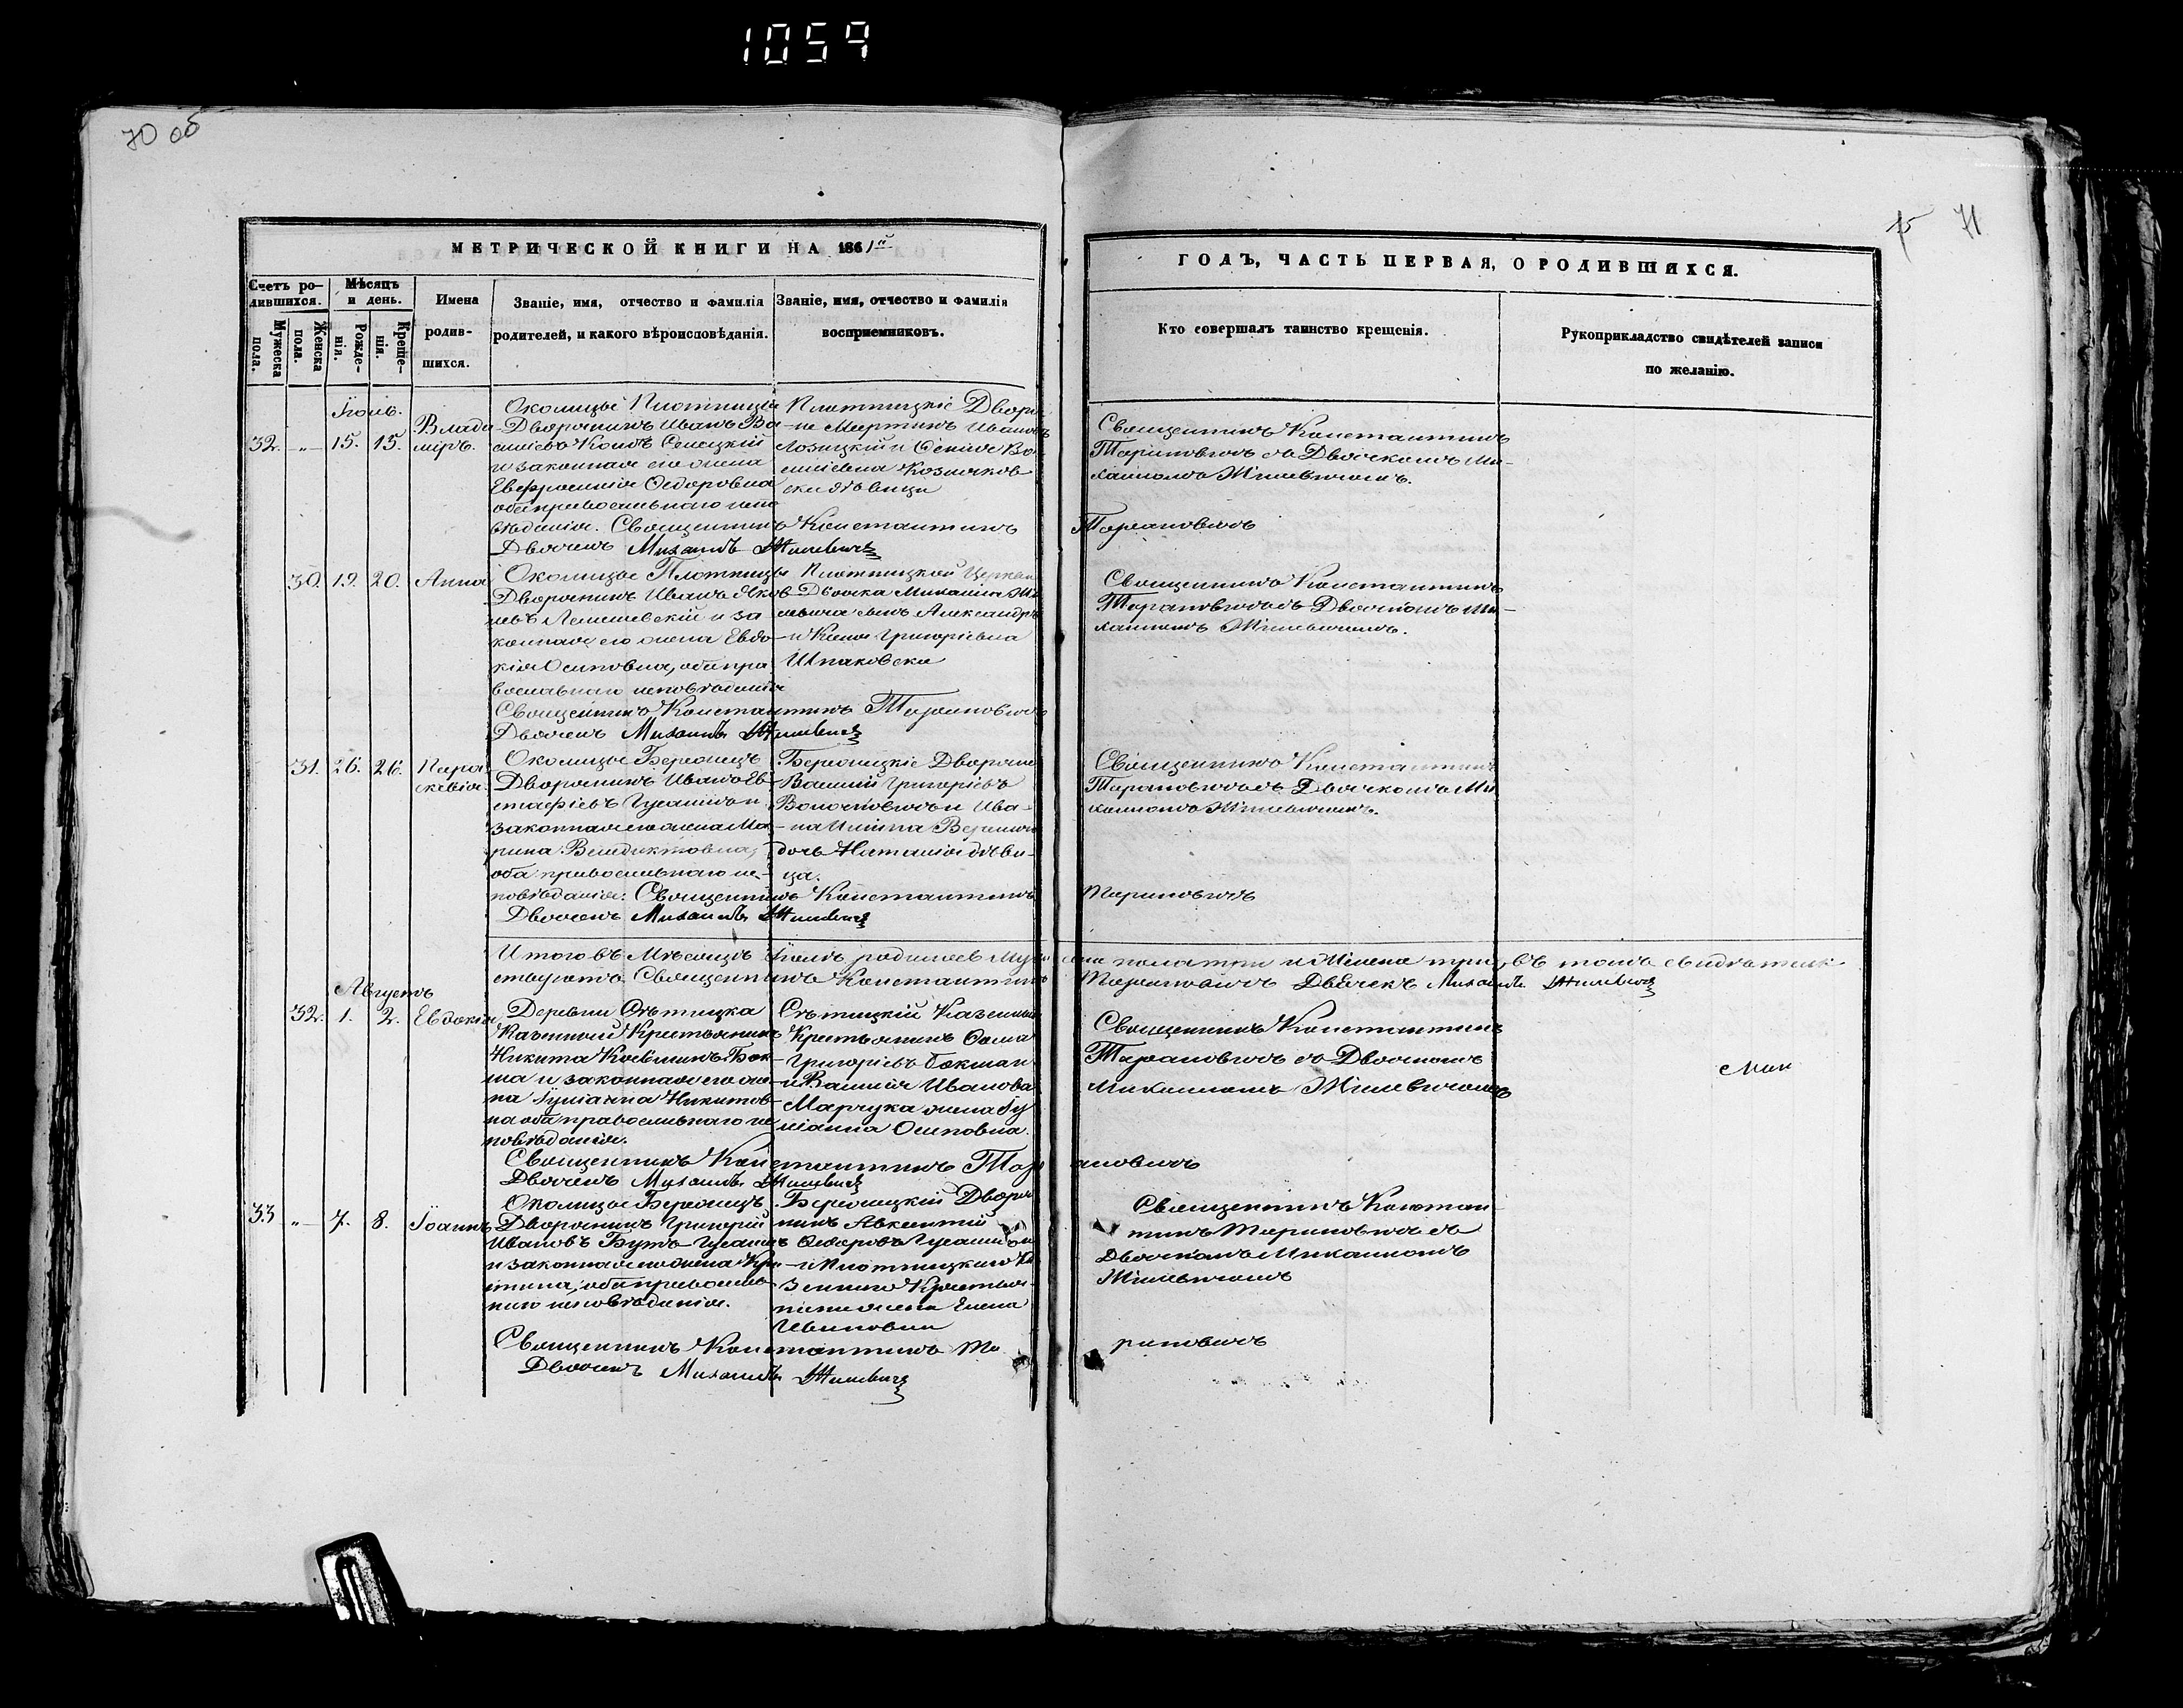 1059
70 об
15 71
МЕТРИЧЕСКОЙ КНИГИ НА 1861й
ГОДЪ, ЧАСТЬ ПЕРВАЯ, О РОДИВШИХСЯ.
Счетъ ро-
дившихся.
Мужеска
пола.
Женска
пола.
Мѣсяцъ
и день.
Рожде-
нія.
Креще-
нія.
Имена
родив-
шихся.
Званіе, имя, отчество и фамилія
родителей, и какого вѣроисповѣданія.
Званіе, имя, отчество и фамилія
воспріемниковъ.
Кто совершалъ таинство крещенія.
Рукоприкладство свидѣтелей записи
по желанію.
Іюль.
32. „ 15. 15. Влади
міръ.
Околицы Плотницы
Дворянинъ Иванъ Ва-
и законная его жена
Евфросинія Ѳедоровна
оба православнаго испо
вѣданія. Священникъ Константинъ Тарановичъ
Дьячекъ Михаилъ Жилевичъ
Плотницкіе Дворя
не Мартинъ Ивановъ
Лозицкій и Ксенія Ва
силіевна
дѣвица
Священникъ Константинъ
Тарановичъ съ Дьячкомъ Ми-
хаиломъ Жилевичемъ.
30. 19. 20. Анна
Околицы Плотницы
Дворянинъ Иванъ Яков
левъ Лемешевскій и за
конная его жена Евдо-
кія Осиповна, оба пра
вославнаго исповѣданія
Священникъ Константинъ Тарановичъ
Дьячекъ Михаилъ Жилевичъ
Плотницкой Церкви
Дьячка Михаила Жи
левича сынъ Александръ
Григоріевна
Шпаковска
Священникъ Константинъ
Тарановичъ съ Дьячкомъ Ми-
хаиломъ Жилевичемъ.
31. 26. 26. Пара
скевія
Околицы Бережцъ
Дворянинъ Иванъ Ев-
стафіевъ Гусаимъ и
законная его жена Ма-
рина Венедиктовна,
оба православнаго ис-
повѣданія: Священникъ Константинъ Тарановичъ
Дьячекъ Михаилъ Жилевичъ
Бережцкіе Дворяне
Василій Григоріевъ
и Ива-
на Ильина
дочь Наталія дѣви-
ца.
Священникъ Константинъ
Тарановичъ съ Дьячкомъ Ми
хаиломъ Жилевичемъ.
Итого въ Мѣсяцъ Іюль родилось Муже ска пола три и Женска три, въ томъ свидѣтель
ствуютъ Священникъ Константинъ Тарановичъ Дьячекъ Михаилъ Жилевичъ
Августъ
32. 1. 2. Евдокія
Деревни Сѣтицка
Казенный Крестьянинъ
Никита
ша и законная его же-
на Іуліанна Никитов
на оба православнаго ис
повѣданія.
Священникъ Константинъ Тарановичъ
Дьячекъ Михаилъ Жилевичъ
Сѣтицкій Казенный
Крестьянинъ Ѳома
Григорьевъ Бокшан
и Василія Иванова
Марчука жена Іу
ліанна Осиповна.
Священникъ Константинъ
Тарановичъ съ Дьячкомъ
Михаиломъ Жилевичемъ
33 „ 7. 8. Іоаннъ
Околицы Бережцъ
Дворянинъ Григорій
Ивановъ
и законная его жена Хри
стина, оба православ-
наго исповѣданія.
Священникъ Константинъ Та рановичъ
Дьячекъ Михаилъ Жилевичъ
Бережцкій Дворя
нинъ Авксентій
Ѳедоровъ
и Плотницкаго Ка
зеннаго Крестья-
нина жена Елена
Ивановна
Священникъ Констан-
тинъ Тарановичъ съ
Дьячкомъ Михаиломъ
Жилевичемъ